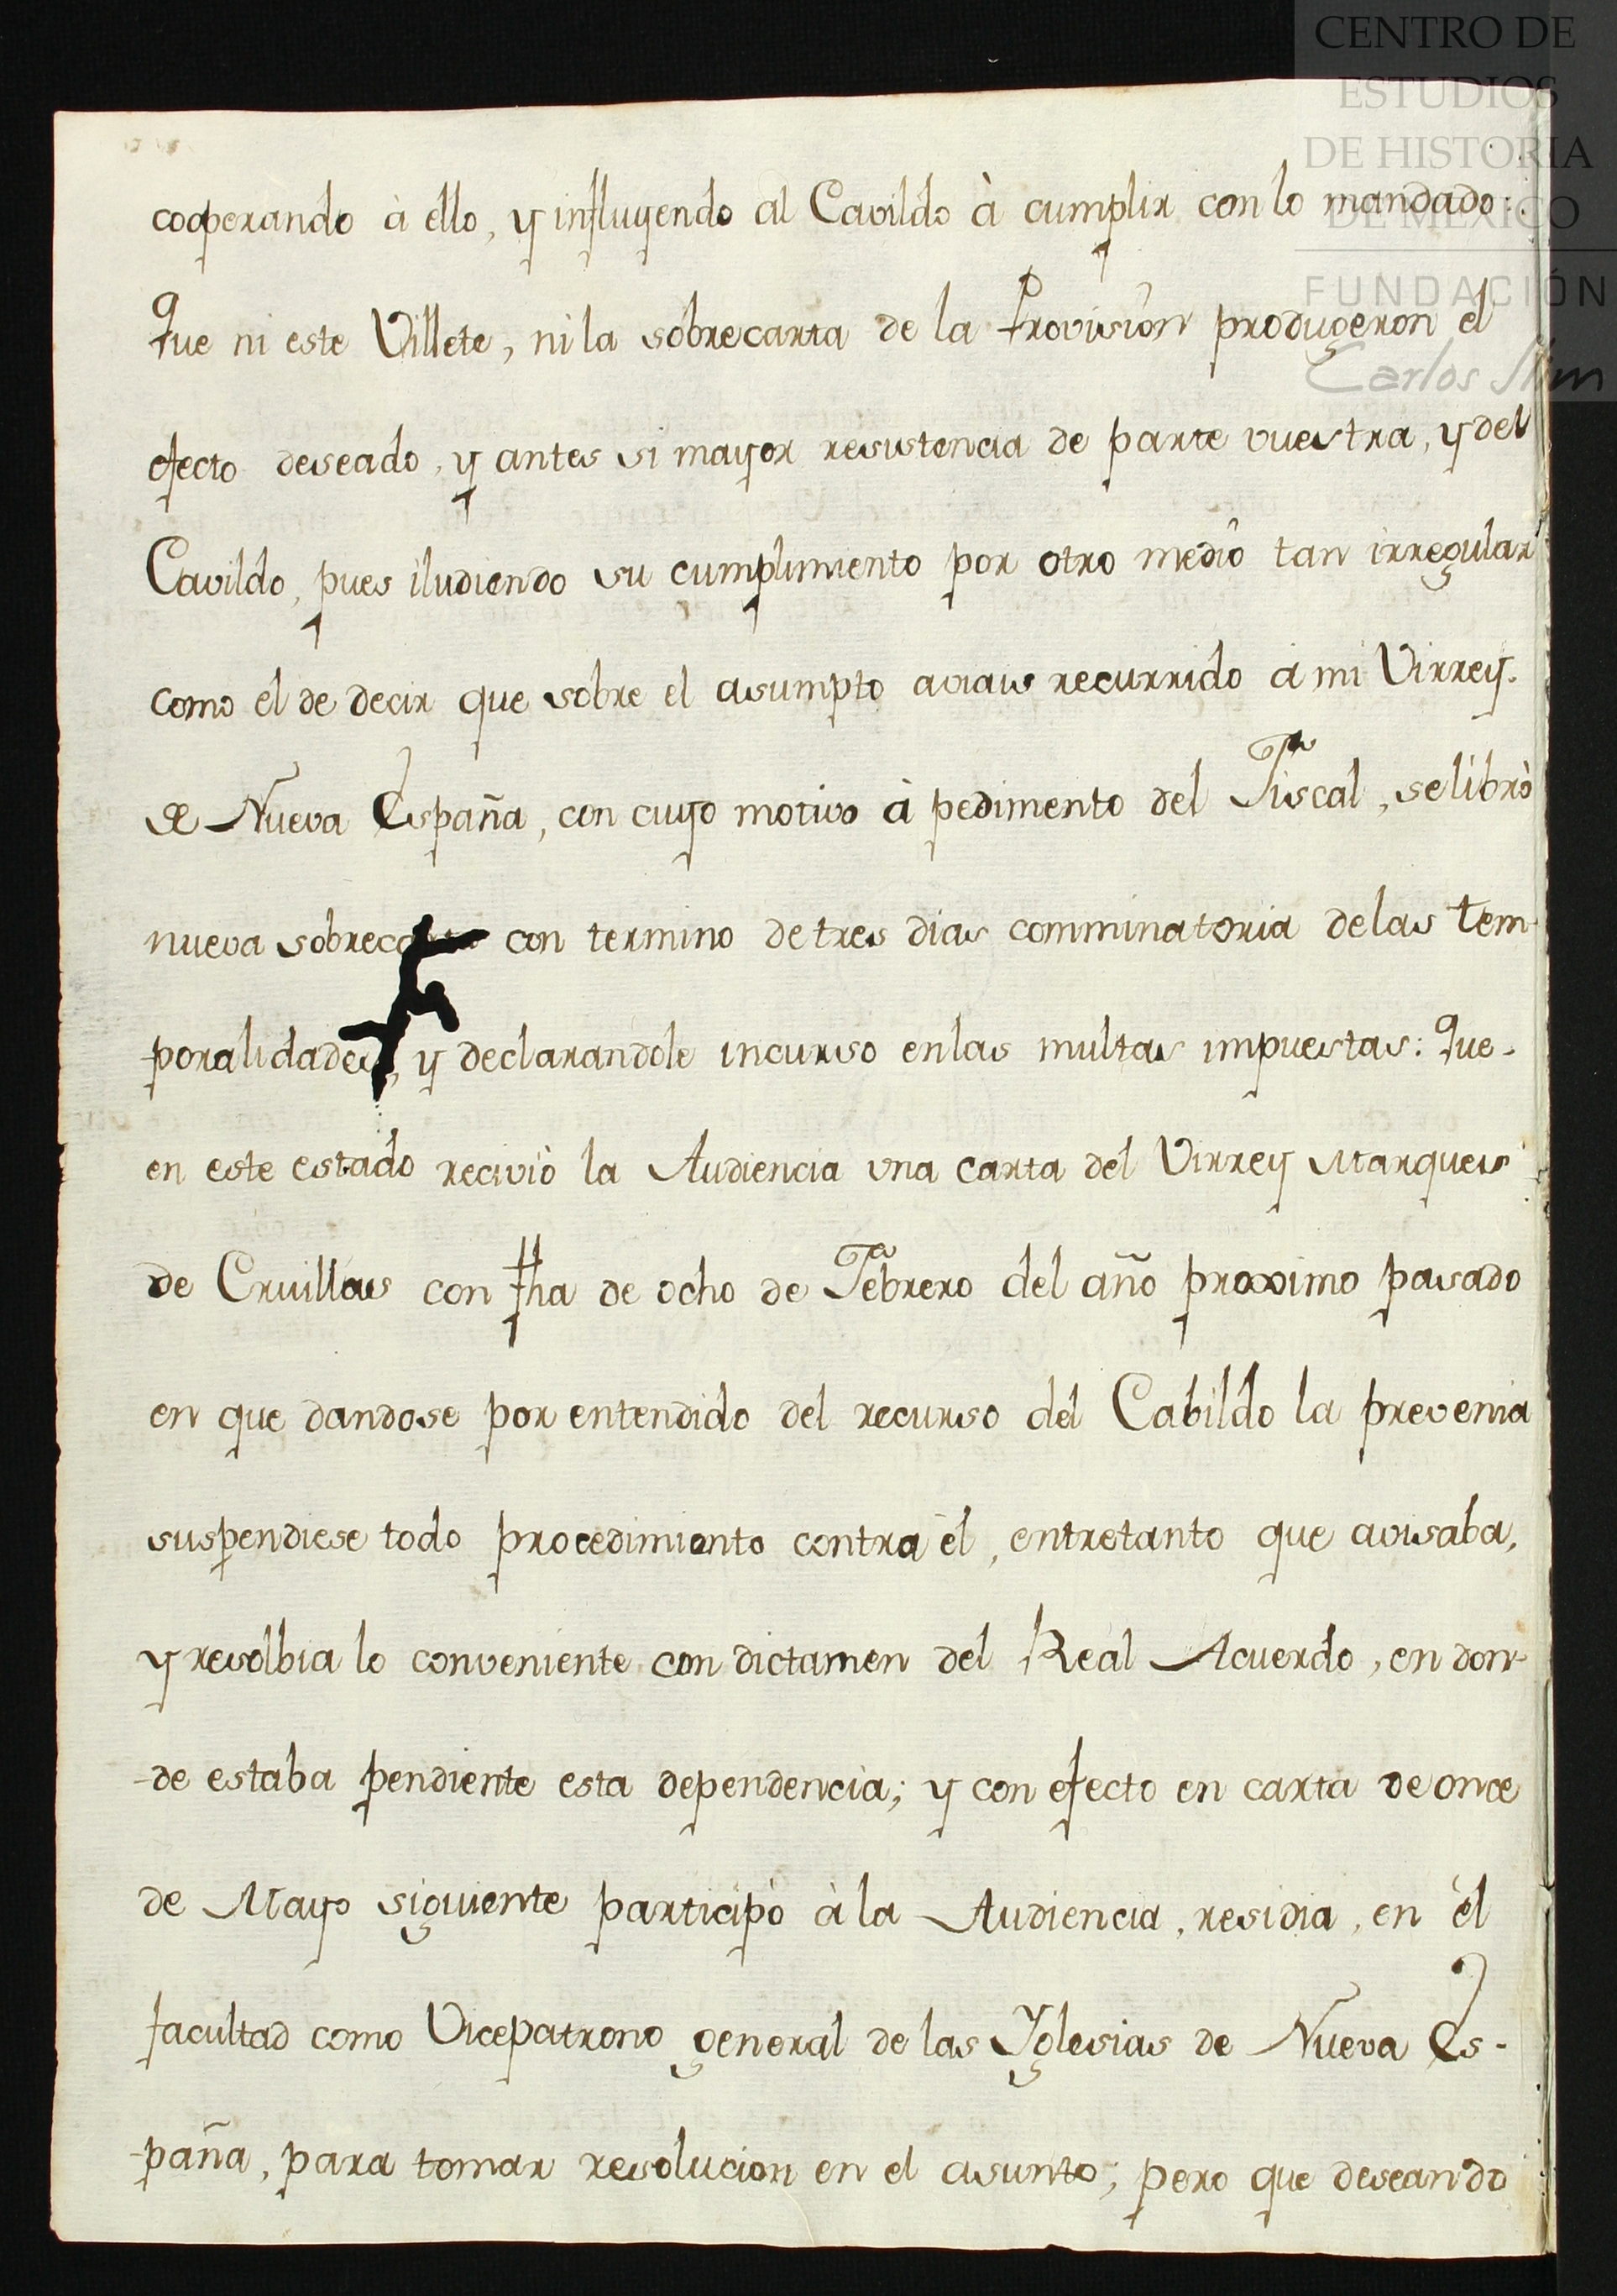 CENTRO DE
ESTUDIOS
DE HISTORIA
DE MÉXICO
FUNDACIÓN
Carlos Slim
cooperando à ello, y influyendo al Cavildo à cumplir con lo mandado:
Que ni este Villete, ni la sobrecarta de la Provision produgeron el
efecto deseado, y antes si mayor resistencia de parte vuestra, y del
Cavildo, pues iludiendo su cumplimiento por otro medio tan irregular
como el de decir que sobre el asumpto aviais recurrido a mi Virrey.
de Nueva España, con cuyo motivo à pedimento del Fiscal, se librò
nueva sobrecarta con termino de tres dias comminatoria de las tem-
poralidades, y declarandole incurso en las multas impuestas: Que-
en este estado recivió la Audiencia una carta del Virrey Marques
de Cruillas con fha de ocho de Febrero del año proximo pasado
en que dandose por entendido del recurso del Cabildo la prevenia
suspendiese todo procedimiento contra él, entretanto que avisaba,
y resolbia lo conveniente con dictamen del Real Acuerdo, en don-
-de estaba pendiente esta dependencia; y con efecto en carta de once
de Mayo siguiente participò à la Audiencia, residia, en él
facultad como Vicepatrono general de las Yglesias de Nueva Es-
-paña, para tomar resolucion en el asunto; pero que deseando